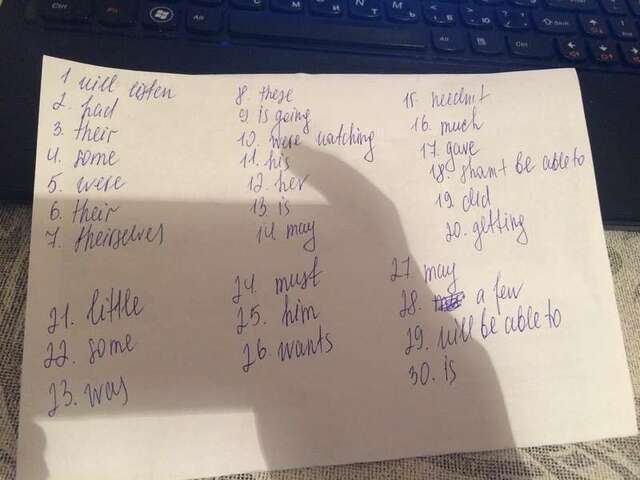 1 will listen
2. had
3. their
4. some
5. were
6. their
7. theirselves
8. these
9. is going
10. were watching
11. his
12. her
13. is
14. may
15. needn't
16. much
17. gave
18. shan't be able to
19. did
20. getting
21. little
22. some
23. was
24. must
25. him
26. wants
27 may
28. a few
29. will be able to
30. is
Ctrl
Fn
Alt
Alt
Ctrl
Shift